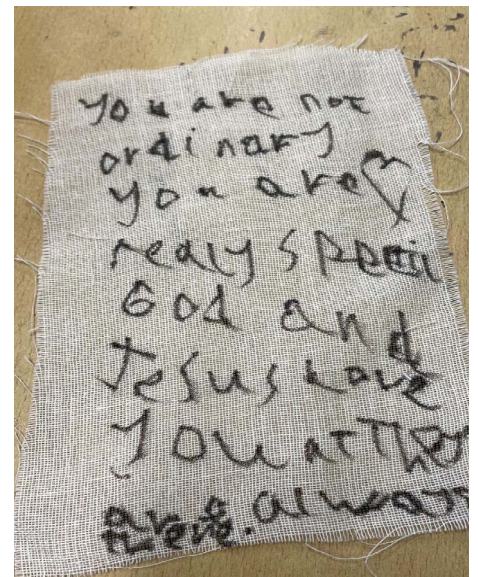 you are not
ordinary
you are
realy special
God and
Jesus Love
You at They
are always
there.